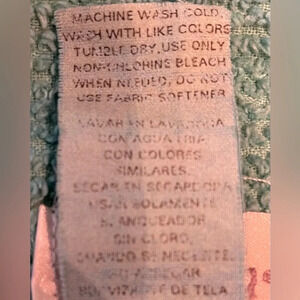 MACHINE WASH COLD,
WASH WITH LIKE COLORS
TUMBLE DRY, USE ONLY
NON-CHLORINE BLEACH
WHEN NEEDED, DO NOT
USE FABRIC SOFTENER
LAVAR EN LAVADORA
CON AGUA FRIA
CON COLORES
SIMILARES.
SECAR EN SECADORA
USAR SOLAMENTE
BLANQUEADOR
SIN CLORO,
CUANDO SE NECESITE.
DE TELA